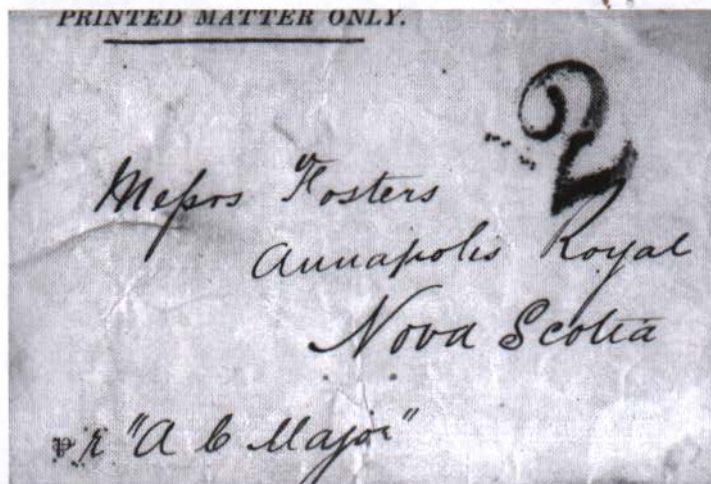 PRINTED MATTER ONLY.
2
Messrs Fosters
Annapolis Royal
Nova Scotia
pr "A C Major"